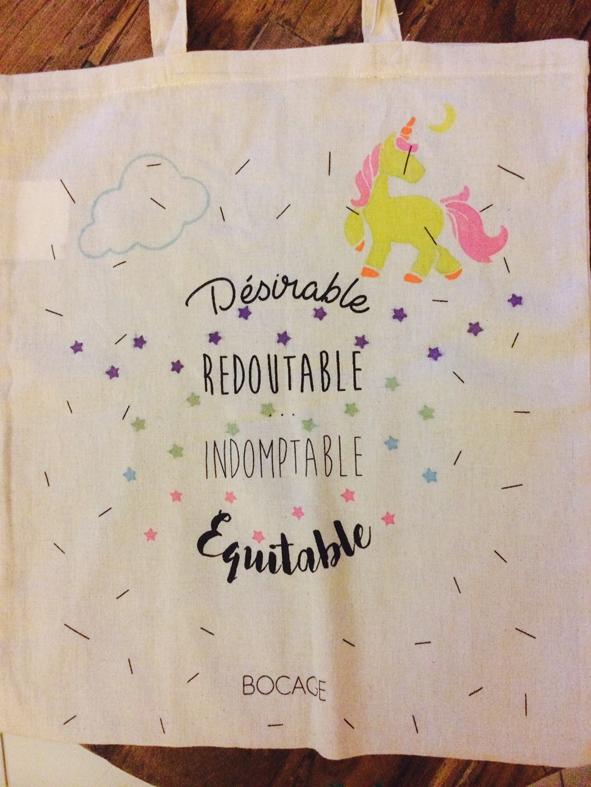 Désirable
REDOUTABLE
...
INDOMPTABLE
Équitable
BOCAGE